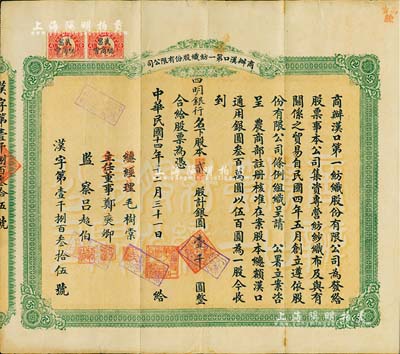 上海陽明拍賣
商辦漢口第一紡織股份有限公司
商辦漢口第一紡織股份有限公司為發給
股票事本公司集資專營紡紗織布及與有
關係之貿易自民國四年五月創立遵依股
份有限公司條例組織呈請 公署立案咨
呈 農商部註冊核准在案股本總額漢口
通用銀圓叁百萬圓以伍百圓為一股今收
到
四明銀行名下股本貳股計銀圓壹千圓整
合給股票為憑
中華民國十四年十二月三十一日 給
總經理 毛樹棠
主任董事 鄭燮卿
監察 呂超伯
漢字第壹千捌百叁拾伍號
上海陽明拍賣